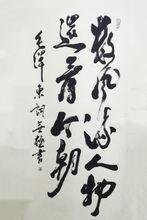 数风流人物
还看今朝
毛泽东词吾極书